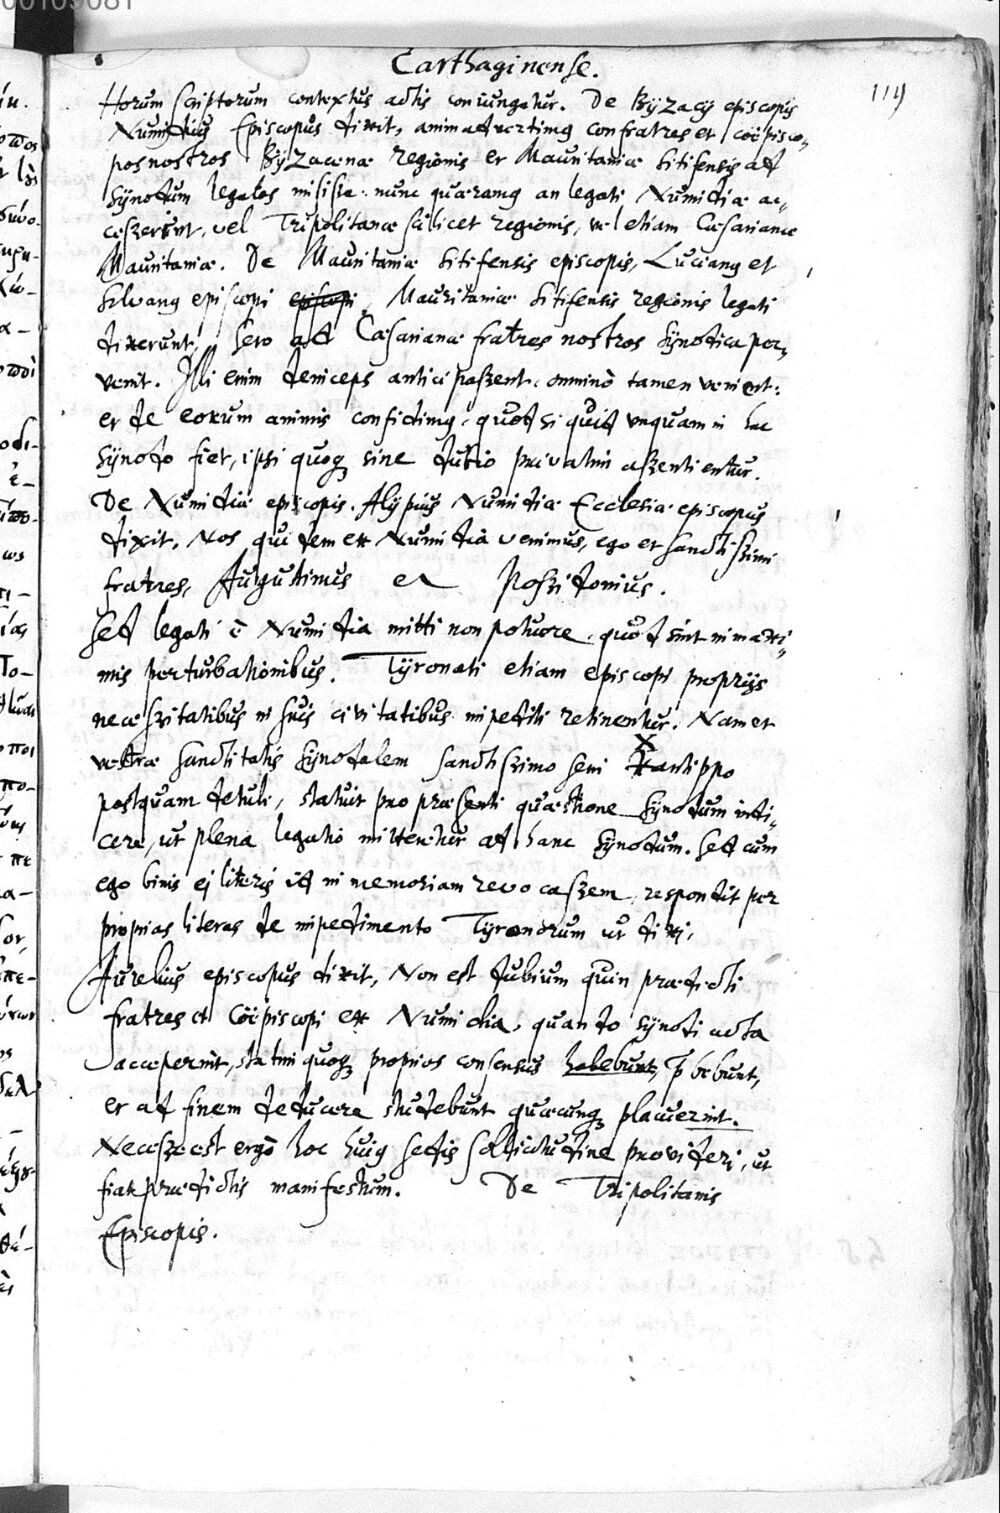 00109081
Carthaginense.
119
Horum scriptorum contextus actis coniungatur. De Byzacij episcopis
Numidius Episcopus dixit, animadvertimus confratres et coëpisco-
pos nostros Byzacenæ regionis et Mauritaniæ Sitifensis ad
Synodum legatos misisse. nunc quæramus an legati Numidiæ ac-
cesserint, vel Tripolitanæ scilicet regionis, vel etiam Cæsarianæ
Mauritaniæ. De Mauritaniæ Sitifensis episcopis, Lucianus et
Silvanus episcopi episcopi, Mauritaniæ Sitifensis regionis legati
dixerunt, Sero ad Cæsarianæ fratres nostros Synodica per-
venit. Illi enim deniceps anticipassent. omninò tamen venient:
et de eorum animis confidimus, quod si quid unquam in hac
Synodo fiet, ipsi quoque sine dubio privatim assentientur.
De Numidiæ episcopis. Alypius Numidiæ Ecclesiæ episcopus
dixit, Nos quidem ex Numidia venimus, ego et sanctissimi
fratres, Augustinus et Possidonius.
Sed legati è Numidia mitti non potuere, quod sint in maxi-
mis perturbationibus. Tyronati etiam episcopi proprijs
necessitatibus in suis civitatibus impediti retinentur. Nam et
vestræ sanctitatis Synodalem sanctissimo seni Xantippo
postquam detuli, statuit pro præsenti quæstione Synodum indi-
cere, ut plena legatio mitteretur ad hanc Synodum. Sed cum
ego binis ej literis id in memoriam revocassem, respondit per
proprias literas de impedimento Tyronorum ut dixi.
Aurelius episcopus dixit, Non est dubium quin prædicti
fratres et Coëpiscopi ex Numidia, quando synodi acta
acceperint, statim quoque proprios consensus habebunt, præbebunt,
et ad finem deducere studebunt quæcunque placuerint.
Necesse est ergò hoc huius sedis sollicitudine provideri, ut
fiat prædictis manifestum. De Tripolitanis
Episcopis.